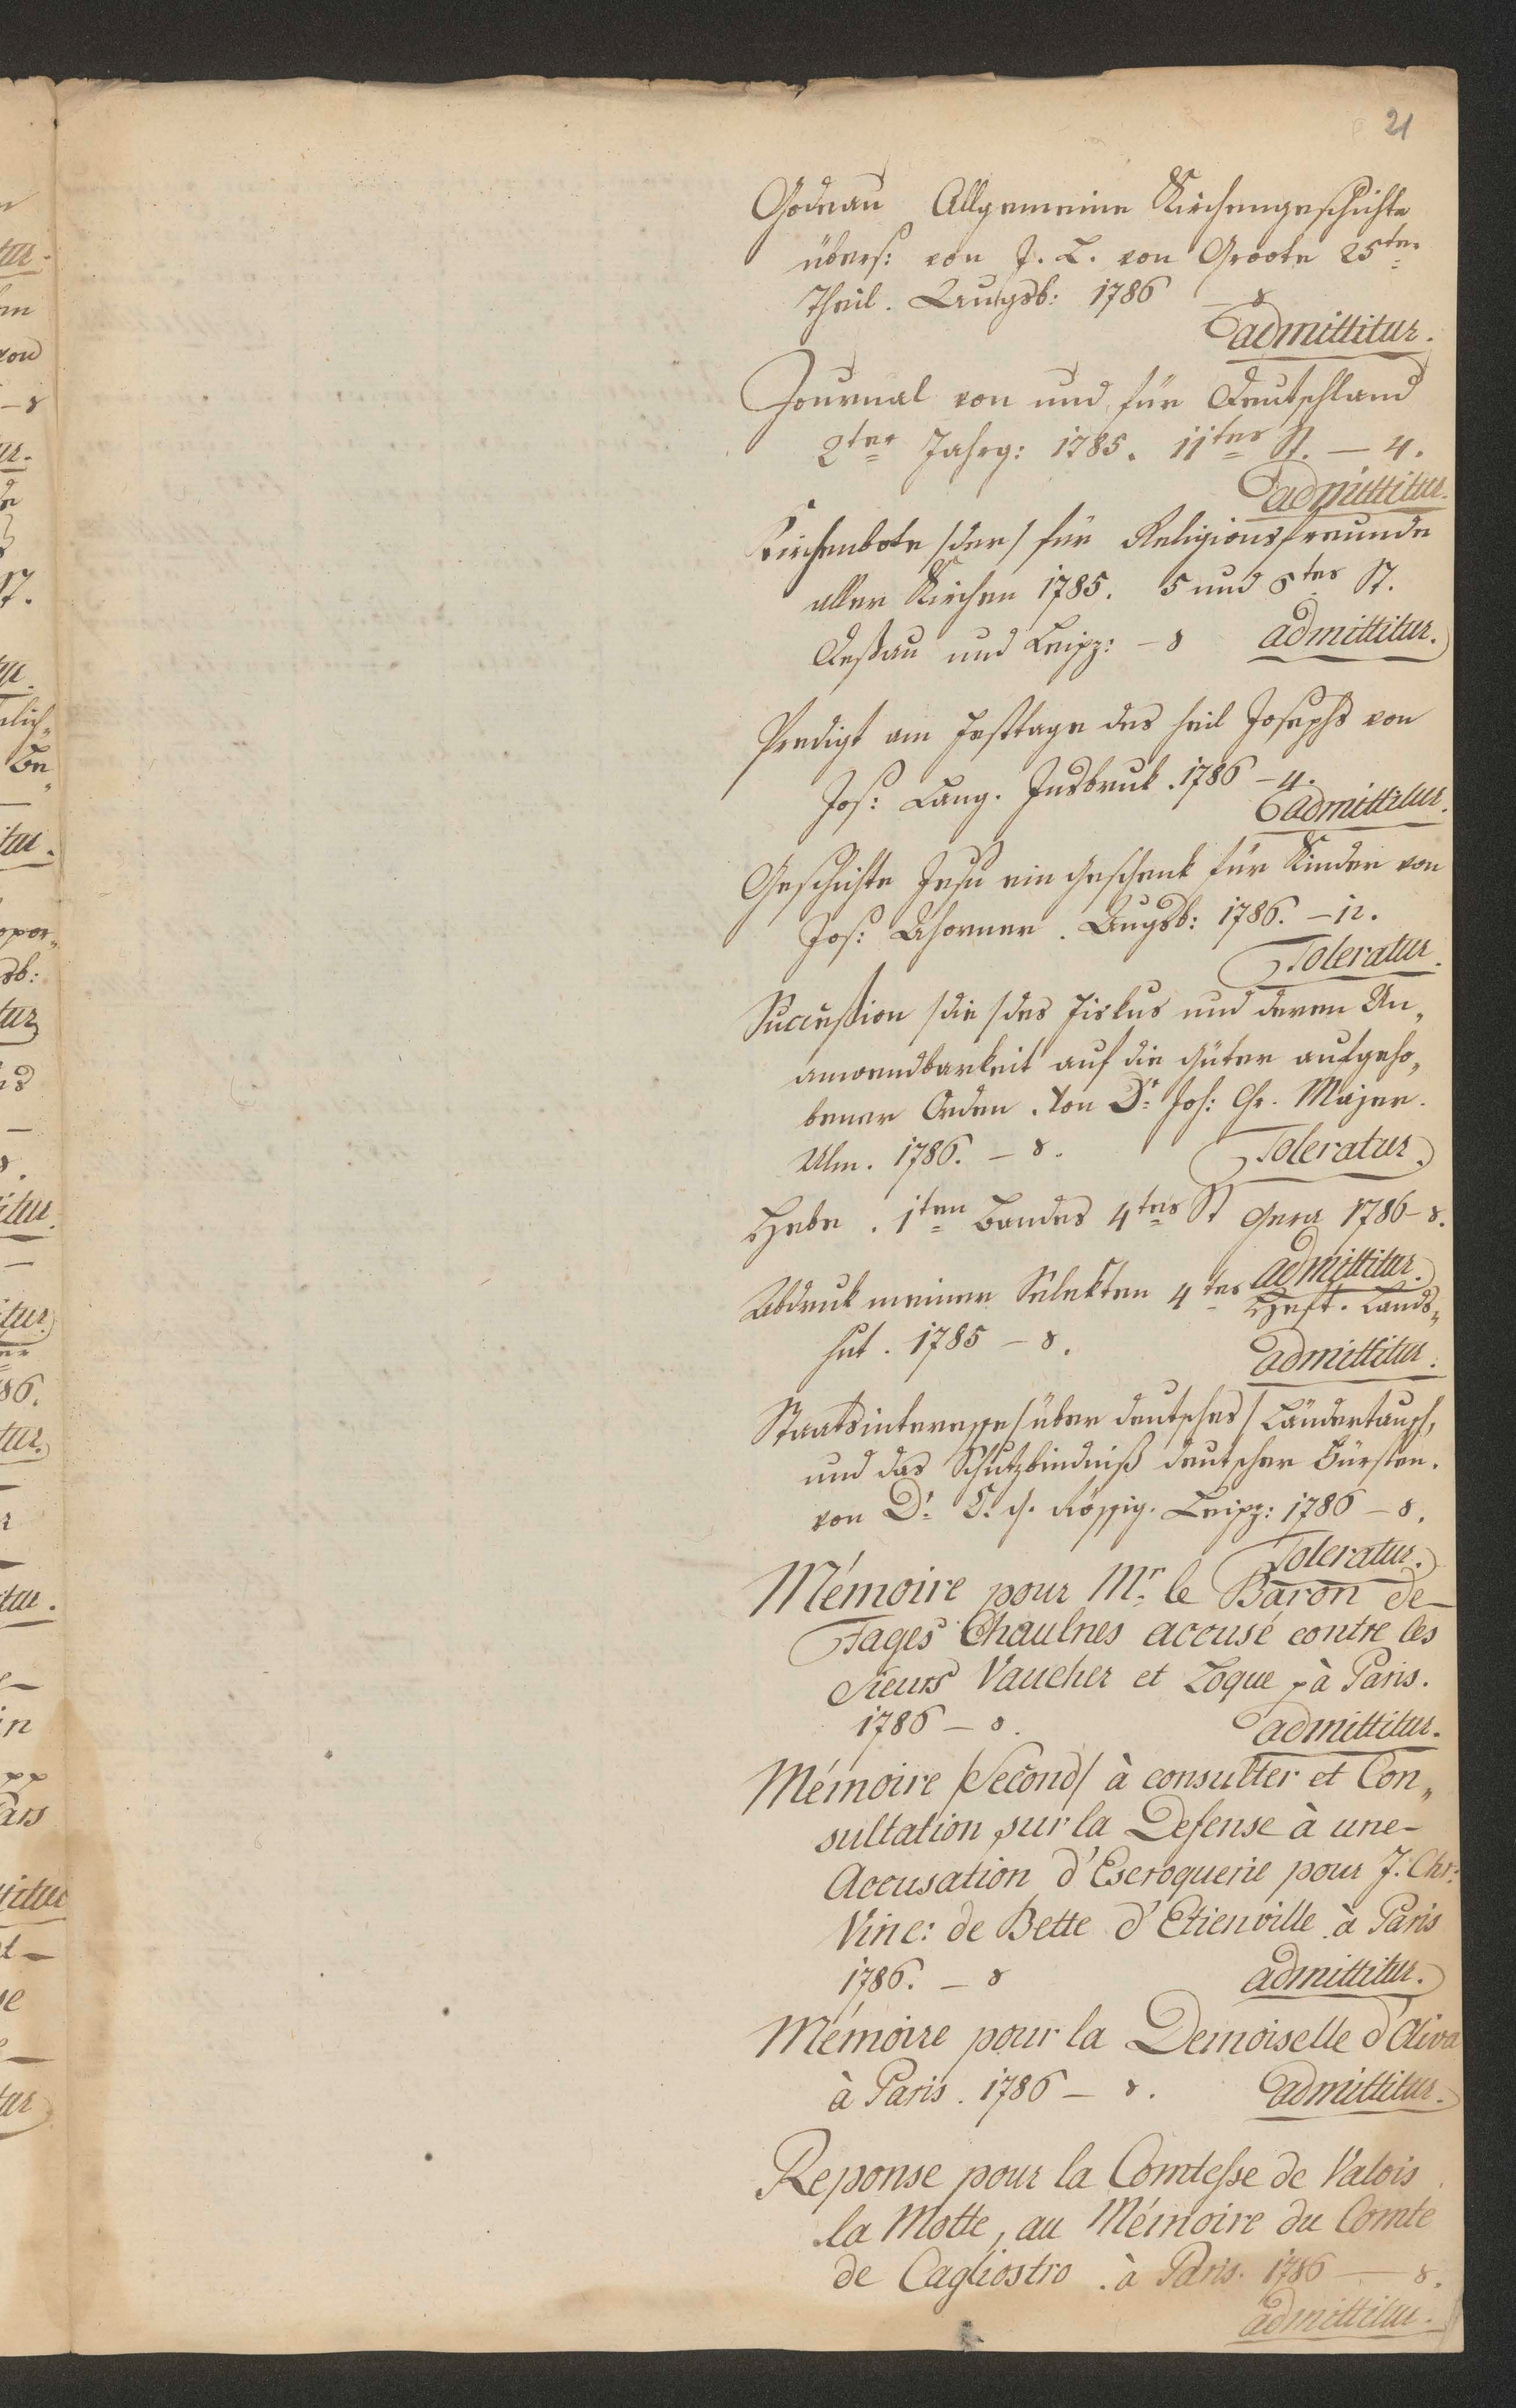 21
Godeau Allgemeine Kirchengeschichte
übers: von J. L. von Groote 25ter
Theil. Augsb: 1786 – 8
admittitur.
Journal von und für Deutschland
2ter Jahrg: 1785. 11tes St. – 4.
admittitur.
Kirchenbote /der/ für Religionsfreunde
aller Kirchen 1785. 5 und 6tes St.
Deßau und Leipz: – 8 admittitur.
Predigt am Festtage des heil Josephs von
Jos: Lang. Insbruk. 1786 – 4.
admittitur.
Geschichte Jesu ein Geschenk für Kinder von
Jos: Ahorner. Augsb: 1786. – 12.
Toleratur.
Succeßion /die/ des Fiskus und deren Un„
anwendbarkeit auf die Güter aufgeho„
bener Orden. Von Dr Joh: Chr. Majer.
Ulm. 1786. – 8. Toleratur.
Hebe. 1ten Bandes 4tes St Gera 1786 – 8.
admittitur.
Abdruk meiner Selekten 4tes Heft. Lands„
hut. 1785 – 8.
admittitur.
Staatsinteresse /über deutsches/ Ländertausch,
und das Schutzbindniß deutscher Fürsten.
von Dr C. G. Rössig. Leipz: 1786 – 8.
Toleratur.
Mémoire pour Mr le Baron de
Fages Chaulnes accusé contre les
Sieurs Vaucher et Loque à Paris.
1786 – 8. admittitur.
Mémoire /Second/ à consulter et Con„
sultation sur la Defense à une
Accusation d'Escroquerie pour J. Chr:
Vinc: de Bette d'Etienville à Paris
1786. – 8 admittitur.
Mémoire pour la Demoiselle d'Oliva
à Paris. 1786 – 8. admittitur.
Reponse pour la Comtesse de Valois
la Motte, au Mémoire du Comte
de Cagliostro. à Paris. 1786 – 8.
admittitur.